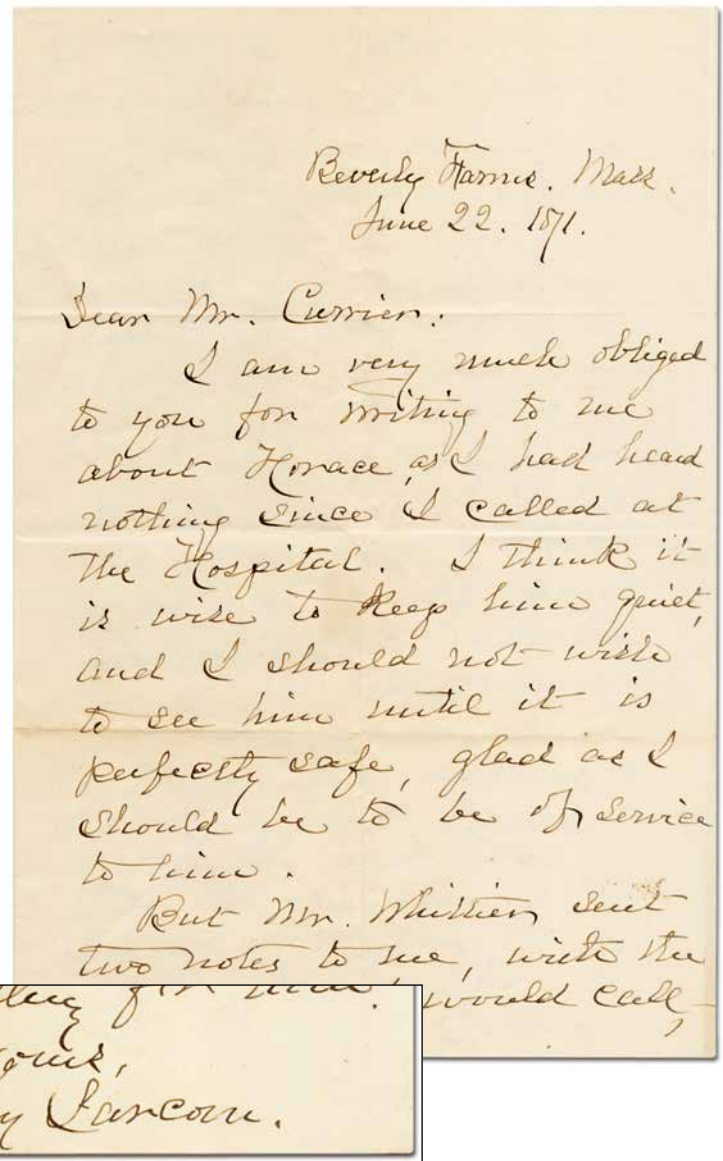 Beverly Farms. Mass.
June 22. 1871.
Dear Mr. Currier:
I am very much obliged
to you for writing to me
about Horace, as I had heard
nothing since I called at
the Hospital. I think it
is wise to keep him quiet,
and I should not wish
to see him until it is
perfectly safe, glad as I
should be to be of service
to him.
But Mr. Whittier sent
two notes to me, with the
would call,
Larcom.